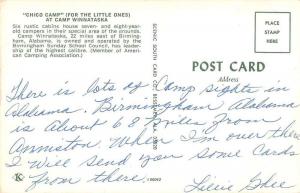 "CHICO CAMP" (FOR THE LITTLE ONES)
AT CAMP WINNATASKA
Six rustic cabins house seven- and eight-year-
old campers in their special area of the grounds.
Camp Winnataska, 22 miles east of Birming-
ham, Alabama, is owned and operated by the
Birmingham Sunday School Council, has leader-
ship of the highest caliber. (Member of Ameri-
can Camping Association)
PLACE
STAMP
HERE
POST CARD
Address
There is lots of Camp sights in
Alabama. Birmingham Alabama
is about 68 Miles From
Anniston. When I'm over there
I will send you some Cards
From there.
K